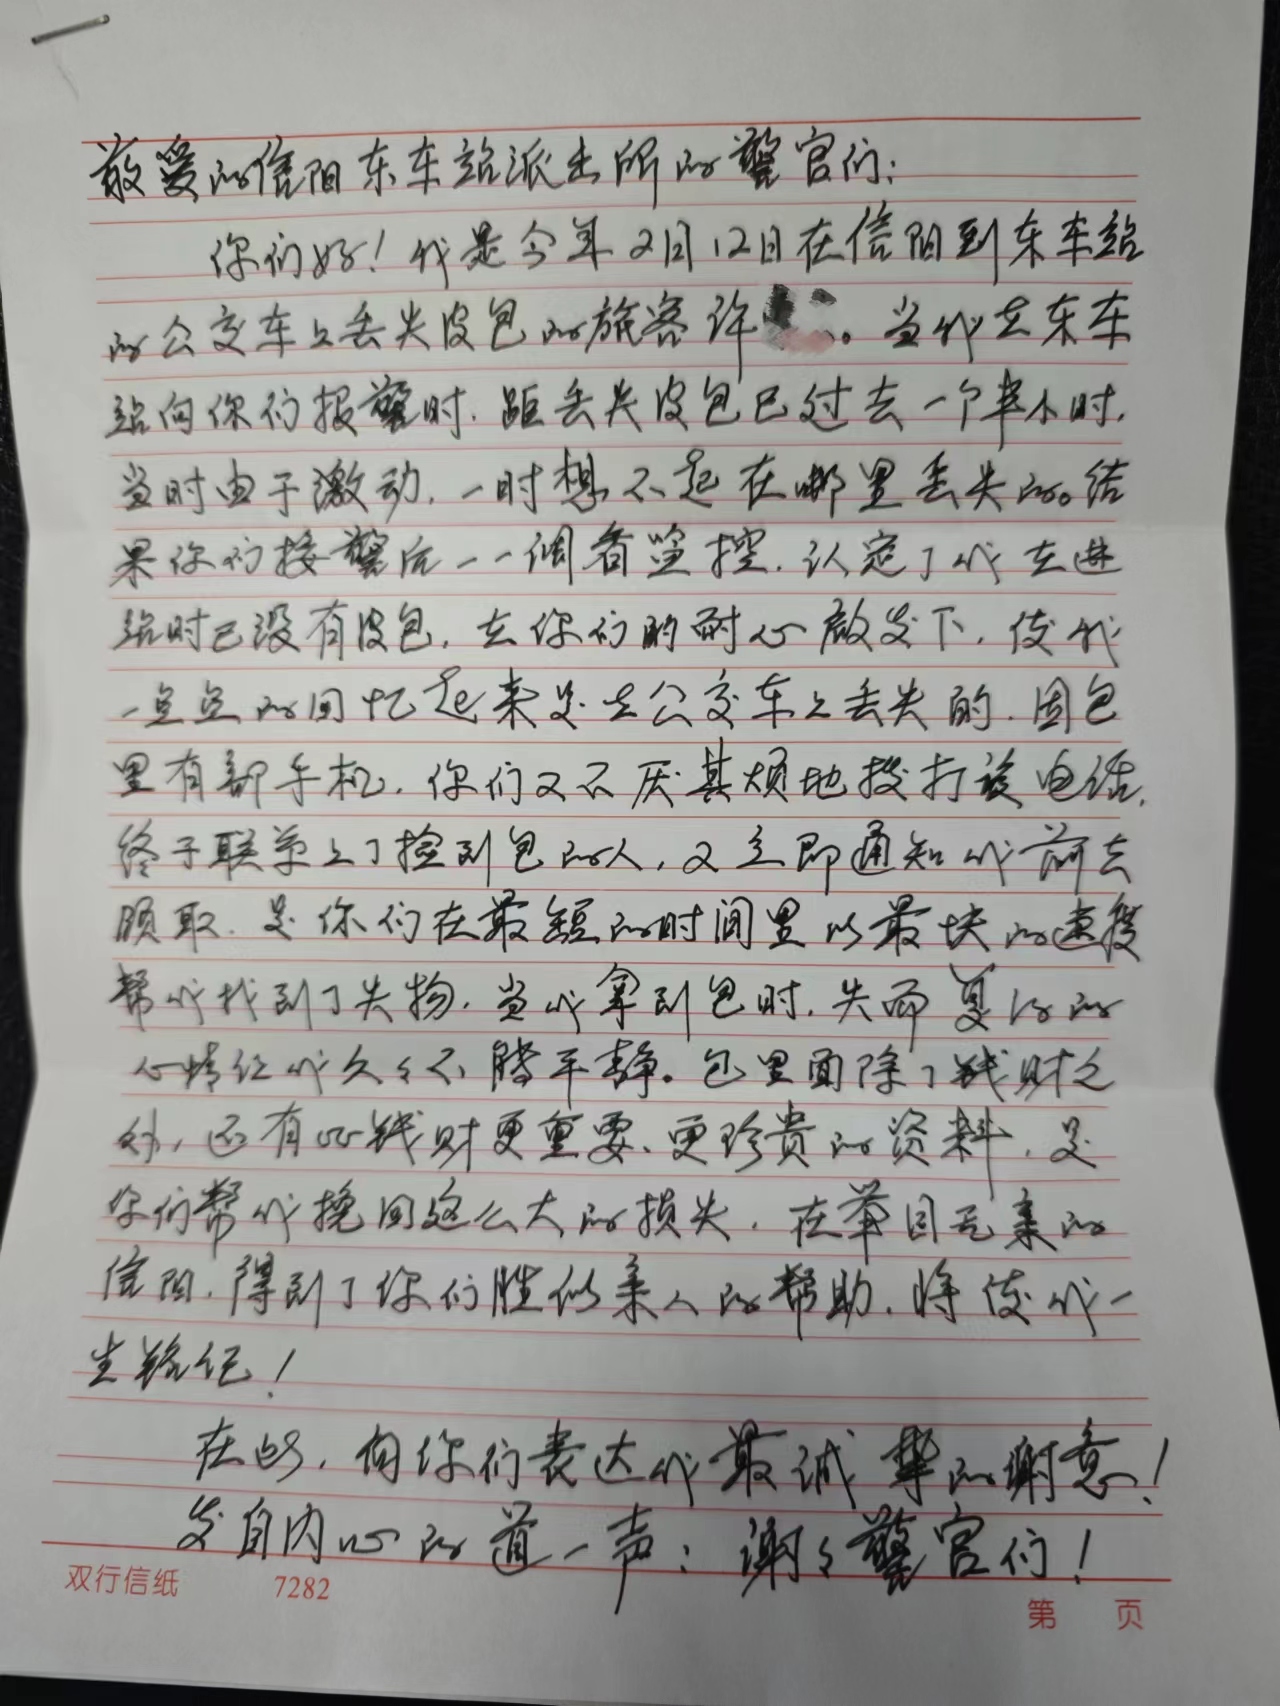 敬爱的信阳东车站派出所的警官们：
你们好！我是今年2月12日在信阳到东车站
的公交车上丢失皮包的旅客许 。当我去东车
站向你们报警时，距丢失皮包已过去一个半小时，
当时由于激动，一时想不起在哪里丢失的。结
果你们接警后一一调看监控，认定了我在进
站时已没有皮包，在你们的耐心启发下，使我
一点点的回忆起来是在公交车上丢失的，因包
里有部手机，你们又不厌其烦地拨打该电话，
终于联系上了捡到包的人，又立即通知我前去
领取。是你们在最短的时间里以最快的速度
帮我找到了失物，当我拿到包时，失而复得的
心情让我久久不能平静。包里面除了钱财之
外，还有比钱财更重要、更珍贵的资料，是
你们帮我挽回这么大的损失，在举目无亲的
信阳，得到了你们胜似亲人的帮助，将使我一
生铭记！
在此，向你们表达我最诚挚的谢意！
发自内心的道一声：谢谢警官们！
双行信纸 7282
第 页